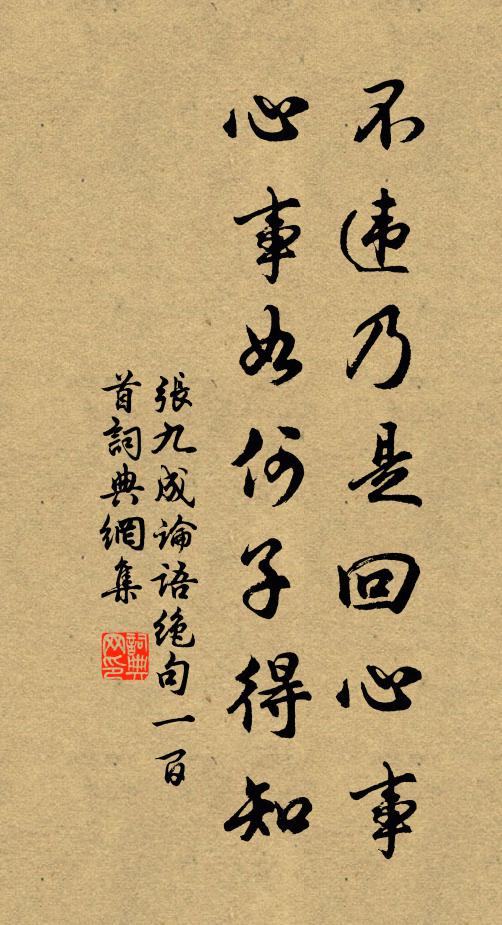 不违乃是回心事
心事如何子得知
張九成論語絶句一百
首詞典網集
詞典网印